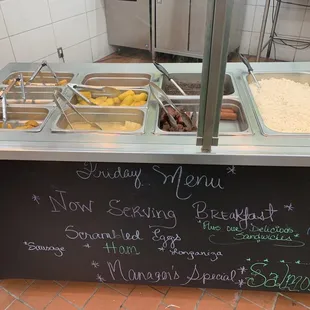 Friday Menu
* Now Serving Breakfast *
Scrambled Eggs
Plus our Delicious
Sandwiches
*Sausage * Ham * Longaniza
* Manager's Special * Salmo